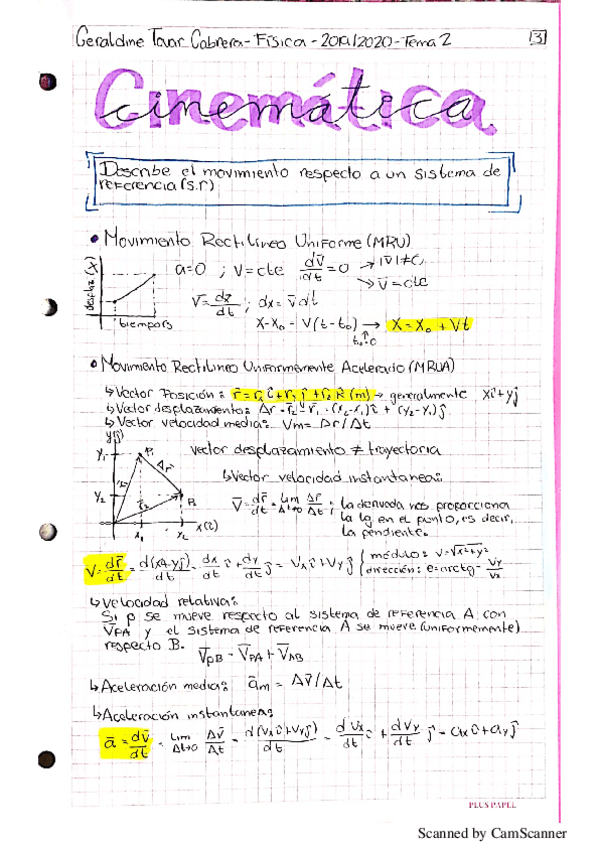 Geraldine Tovar Cabrera - Física - 2019/2020 - Tema 2
3
Cinemática
Describe el movimiento respecto a un sistema de
referencia (s.r)
• Movimiento Rectilíneo Uniforme (MRU)
desplaz (x)
tiempo(s)
a=0 ; v=cte dv̄/dt = 0 → |v̄| ≠ 0
→ v̄ = cte
v̄ = dx/dt ; dx = v̄ dt
x-x₀ = v(t-t₀) → x = x₀ + vt
t₀=0
• Movimiento Rectilíneo Uniformemente Acelerado (MRUA)
↳ Vector Posición: r̄ = rₓ î + r_y ĵ + r_z k̂ (m) → generalmente xî+yĵ
↳ Vector desplazamiento: Δr = r̄₂ - r̄₁ = (x₂-x₁)î + (y₂-y₁)ĵ
↳ Vector velocidad media: Vm = Δr/Δt
y(ĵ)
y₁
P₁
Δr
y₂
P₂
x₁
x₂
x(î)
vector desplazamiento ≠ trayectoria
↳ Vector velocidad instantanea:
v̄ = dr̄/dt = lim Δt→0 Δr̄/Δt ; la derivada nos proporciona
la tg en el punto, es decir,
la pendiente.
V = dr̄/dt = d(xî+yĵ)/dt = dx/dt î + dy/dt ĵ = Vx î + Vy ĵ { módulo: v=√x²+y²
dirección: θ=arctg Vy/Vx
↳ Velocidad relativa:
Si p se mueve respecto al sistema de referencia A, con
V̄PA y el sistema de referencia A se mueve (uniformemente)
respecto B.
V̄PB = V̄PA + V̄AB
↳ Aceleración media: ām = Δv̄/Δt
↳ Aceleración instantanea:
ā = dv̄/dt = lim Δt→0 Δv̄/Δt = d(Vxî+Vyĵ)/dt = dVx/dt î + dVy/dt ĵ = axî + ayĵ
PLUS PAPEL
Scanned by CamScanner